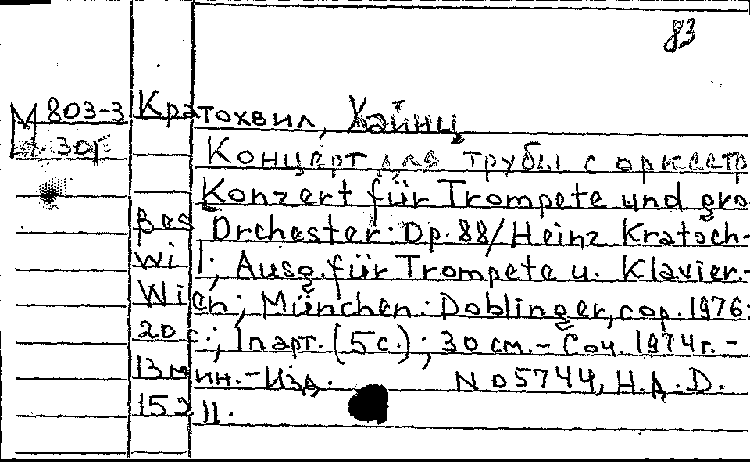 83
М 803-3 Кратохвил, Хайнц
Концерт для трубы с оркестр
Konzert für Trompete und gro
ßes Orchester: Op. 88/Heinz Kratoch-
wil; Ausg. für Trompete u. Klavier.-
Wien; München: Doblinger, cop. 1976.
20 с.; 1 парт. (5 с.); 30 см.- Соч. 1974г.-
13 мин.- Изд. N 05744, H.A.D.
15311.